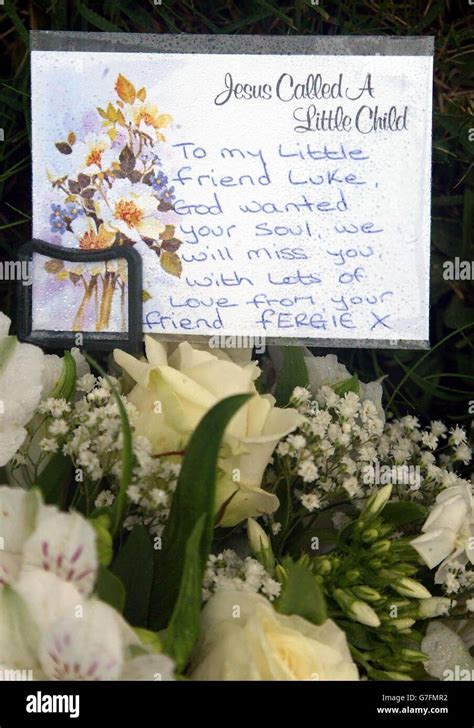 Jesus Called A
Little Child
To my Little
friend Luke,
God wanted
your soul, we
will miss you,
with Lots of
Love from your
friend fERGIE X
alamy
Image ID: G7FMR2
www.alamy.com